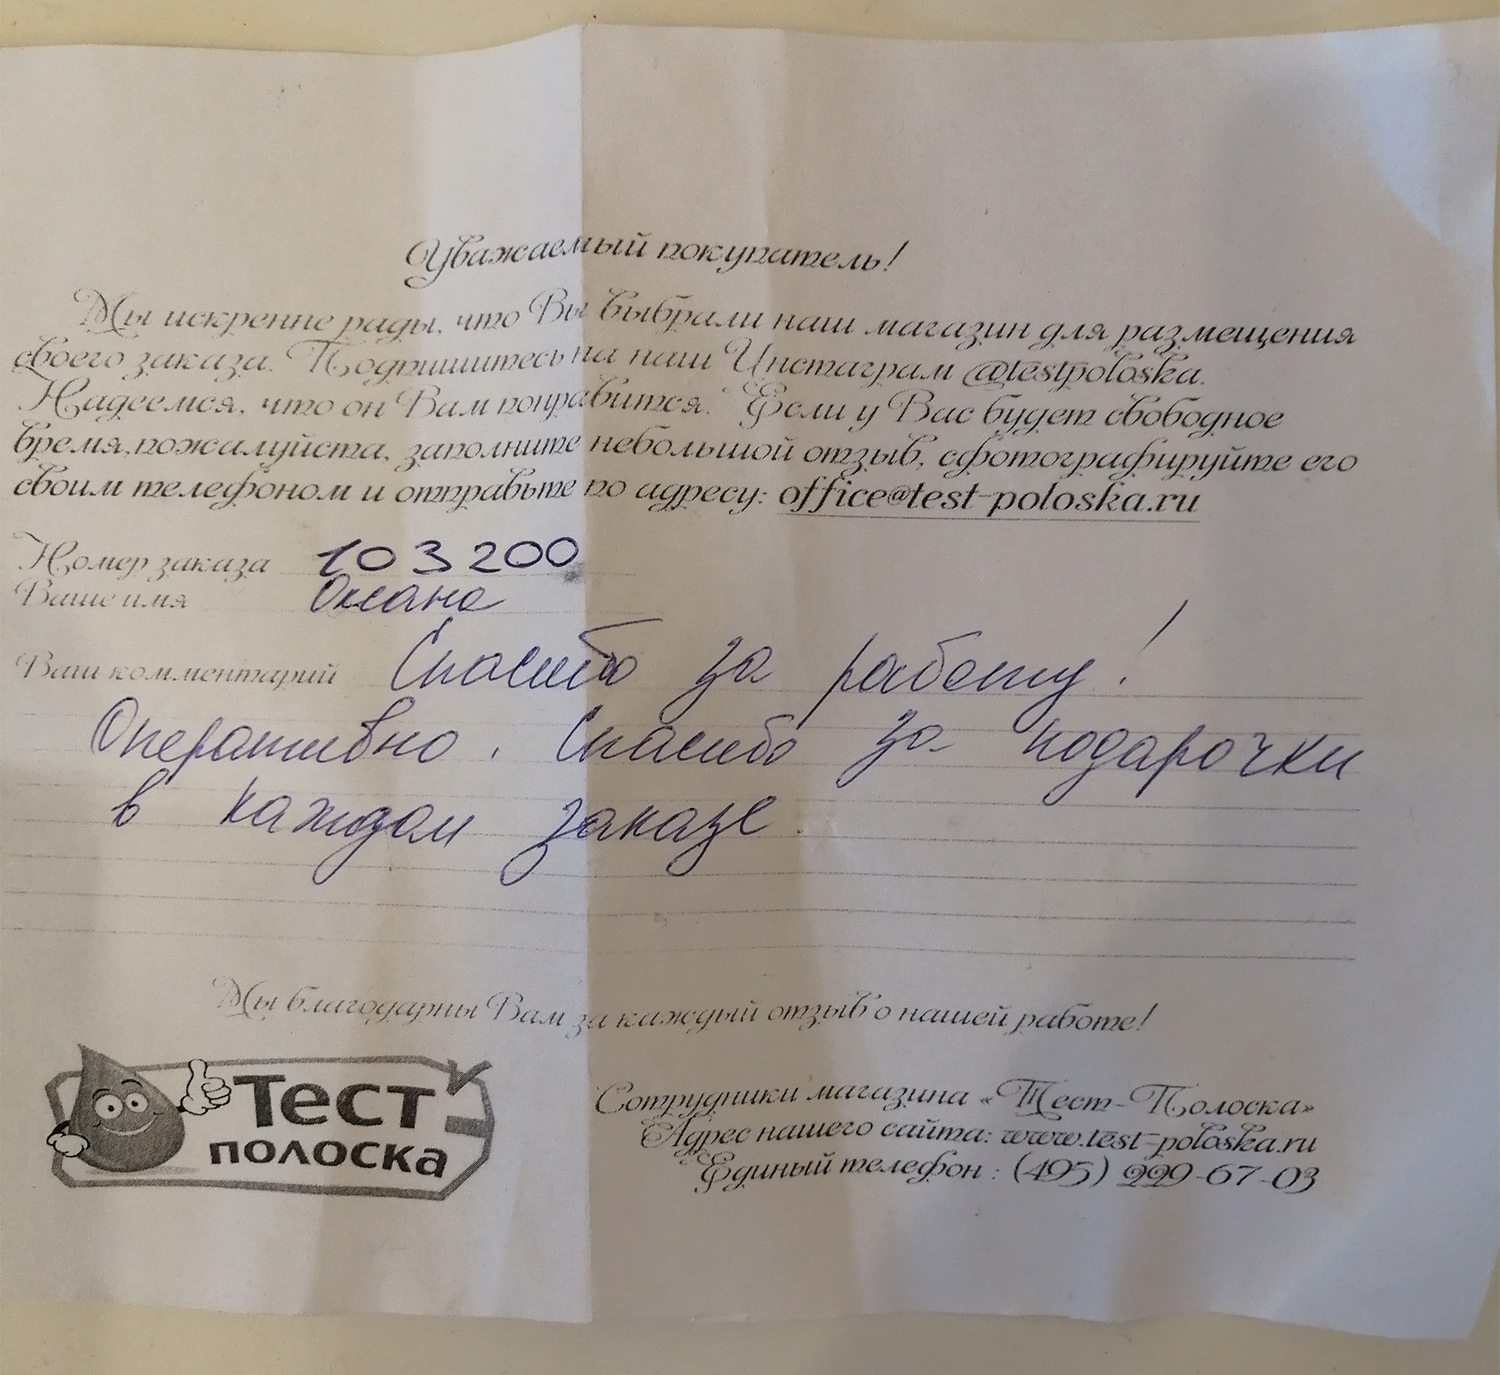 Уважаемый покупатель!
Мы искренне рады, что Вы выбрали наш магазин для размещения
своего заказа. Подпишитесь на наш Инстаграм @testpoloska.
Надеемся, что он Вам понравится. Если у Вас будет свободное
время, пожалуйста, заполните небольшой отзыв, сфотографируйте его
своим телефоном и отправьте по адресу: office@test-poloska.ru
Номер заказа 103200
Ваше имя Оксана
Ваш комментарий Спасибо за работу!
Оперативно. Спасибо за подарочки
в каждом заказе.
Мы благодарны Вам за каждый отзыв о нашей работе!
Тест
полоска
Сотрудники магазина «Тест-Полоска»
Адрес нашего сайта: www.test-poloska.ru
Единый телефон : (495) 229-67-03